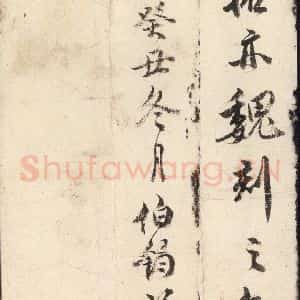 亦魏刻之
癸丑冬月伯鈞
Shufawang.CN